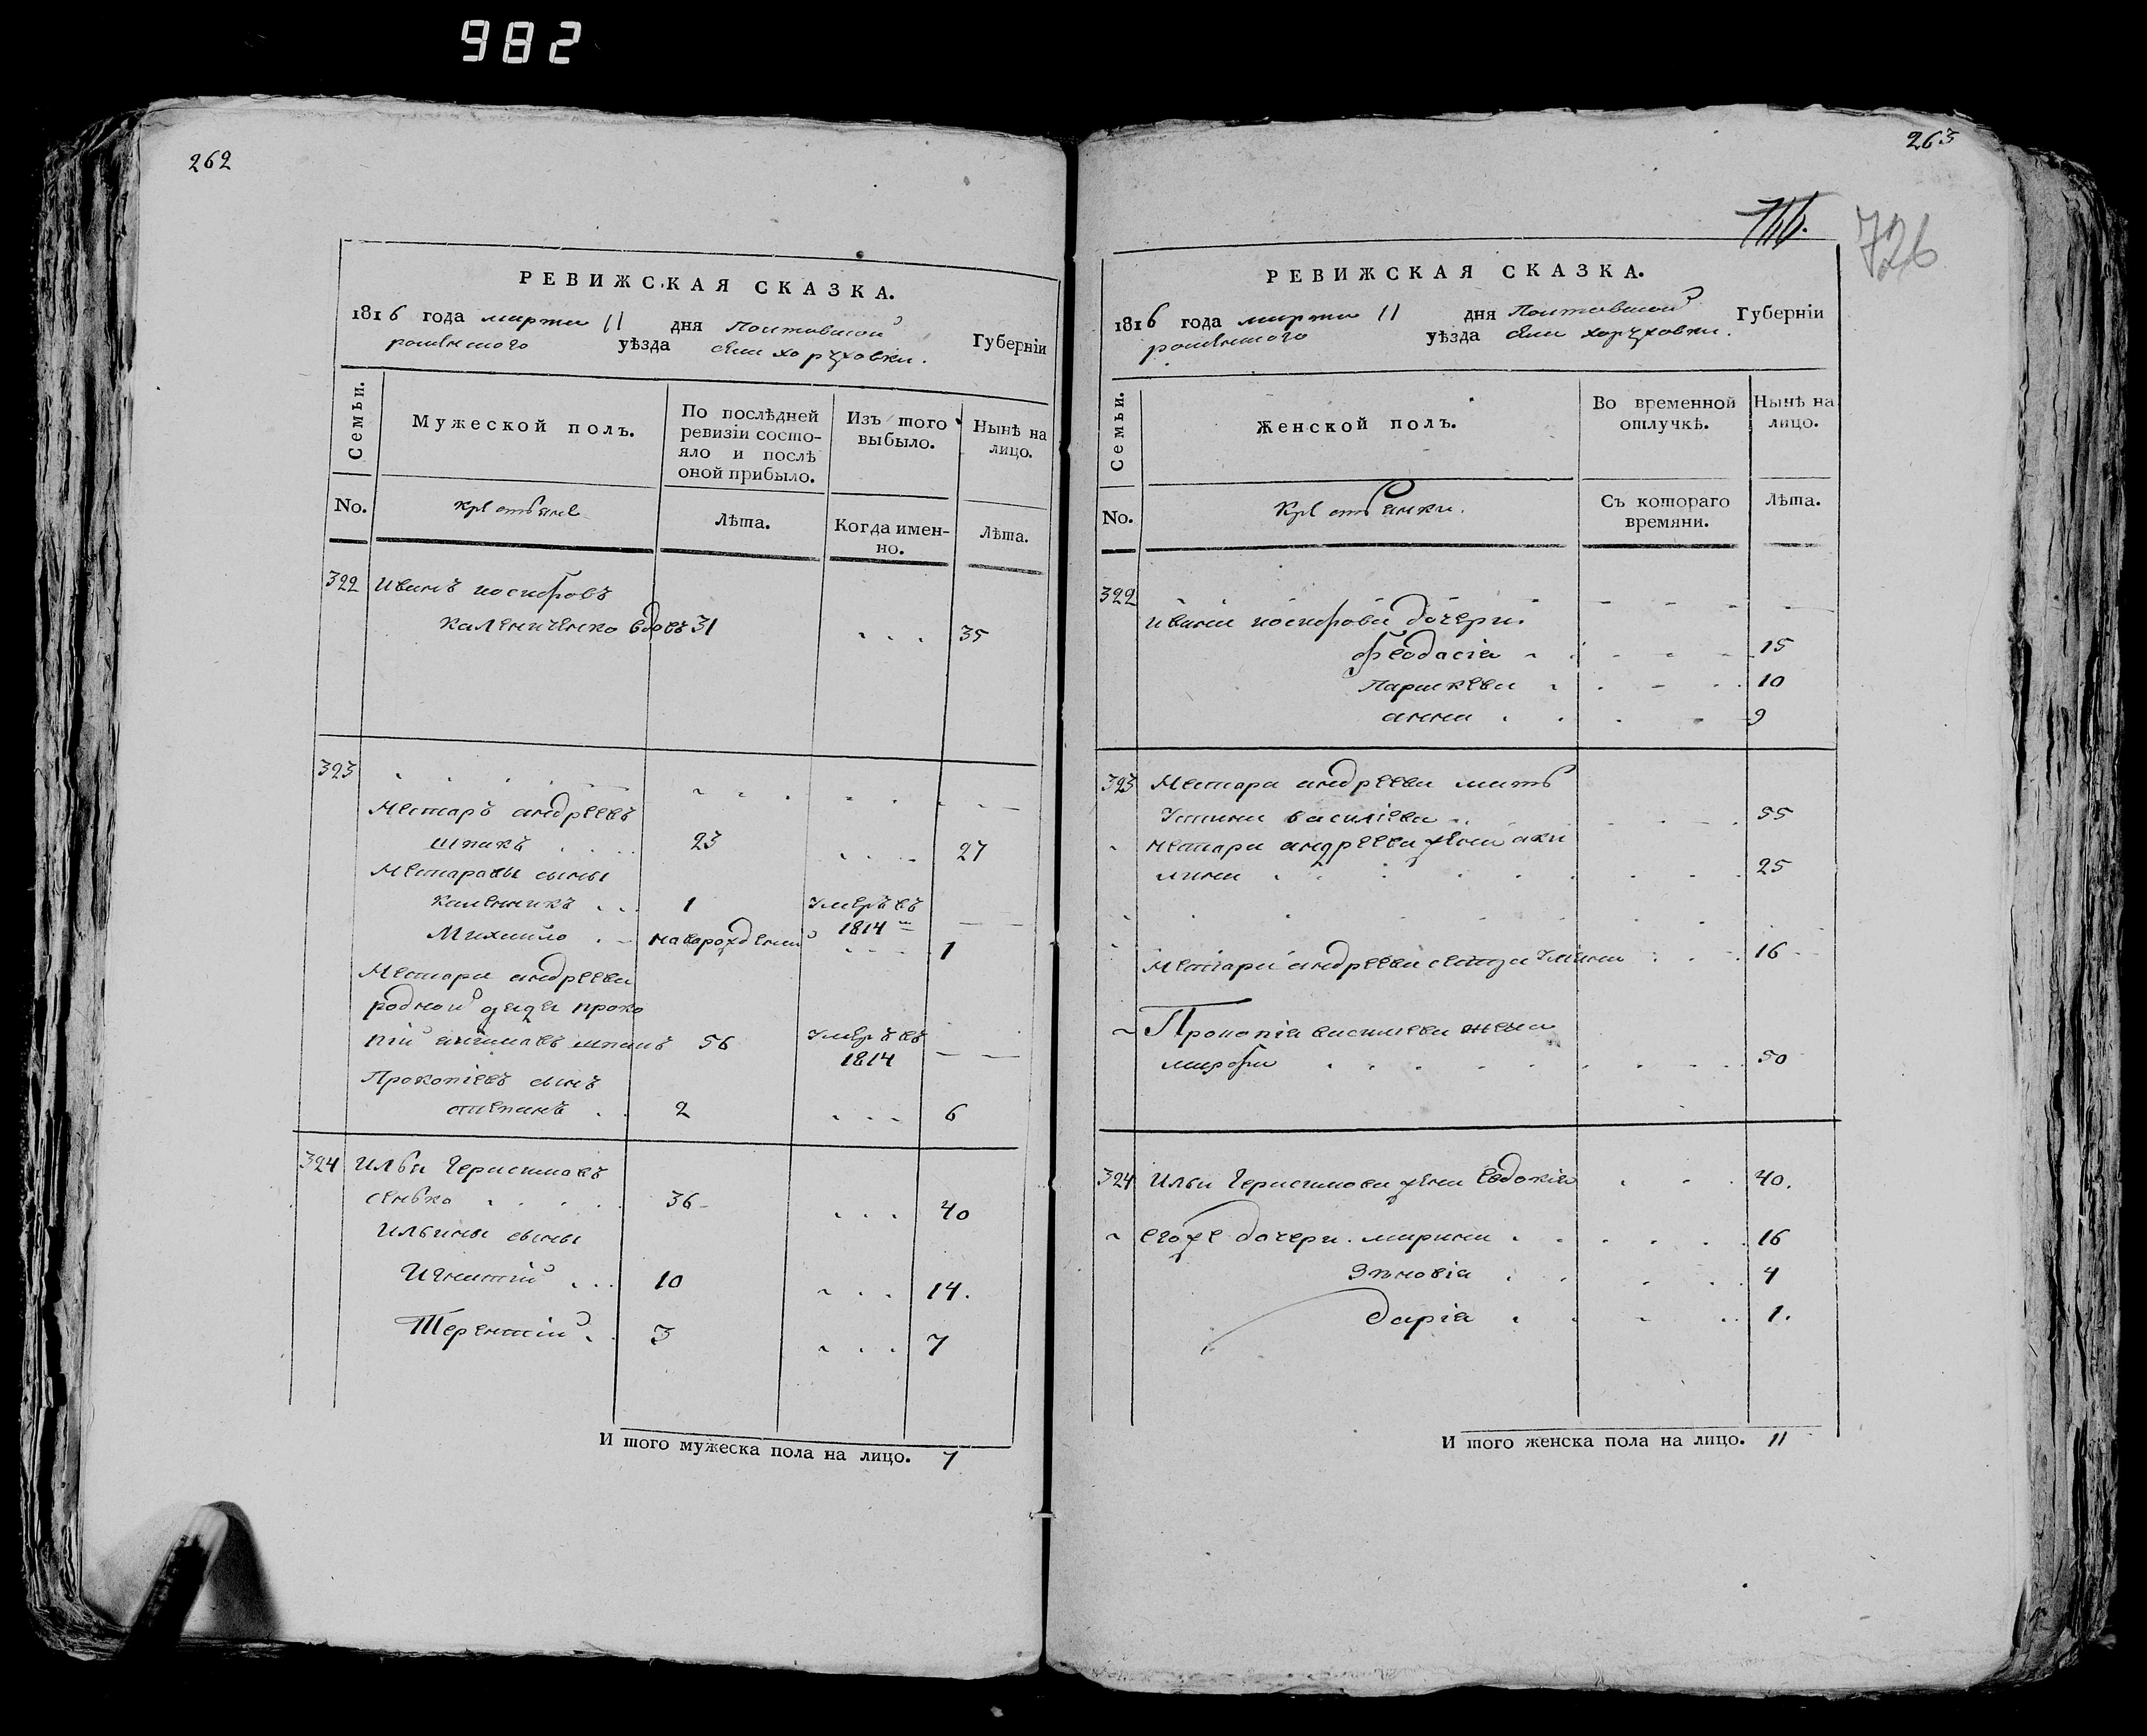 982
262
РЕВИЖСКАЯ СКАЗКА.
1816 года марта 11 дня Полтавской Губерніи
роменского уѣзда села хоружовки.
Семьи.
Мужеской полъ.
По послѣдней ревизіи состояло и послѣ оной прибыло.
Изъ того выбыло.
Нынѣ на лицо.
No.
Крестьяне
Лѣта.
Когда именно.
Лѣта.
322 Иванъ иосифовъ
калениченко вдовъ 31 35
323
Нестаръ андреевъ
шпакъ 23 27
Нестаровы сыны
калениикъ 1 умеръ въ 1814
Михайло новорожденной 1
Нестара андреева
родной дядя проко
пій 56 умеръ въ 1814
Прокопіевъ сынъ
степанъ 2 6
324 Илья герасимовъ
сенько 36 40
Ильины сыны
Игнатій 10 14.
Терентій 3 7
И того мужеска пола на лицо. 7
263
726
РЕВИЖСКАЯ СКАЗКА.
1816 года марта 11 дня Полтавской Губерніи
роменского уѣзда села хоружовки.
Семьи.
Женской полъ.
Во временной отлучкѣ.
Нынѣ на лицо.
No.
Крестьянки.
Съ котораго времяни.
Лѣта.
322
ивана иосифова дочери.
феодасіа 15
параскева 10
анна 9
323 Нестара андреева мать
Устина василіева 55
нестара андреева жена аку
лина 25
Нестара андреева сестра Улина 16
Прокопіа жена
марфа 50
324 Ильи герасимова жена Евдокіа 40.
егоже дочери. марина 16
Зѣновіа 4
даріа 1.
И того женска пола на лицо. 11